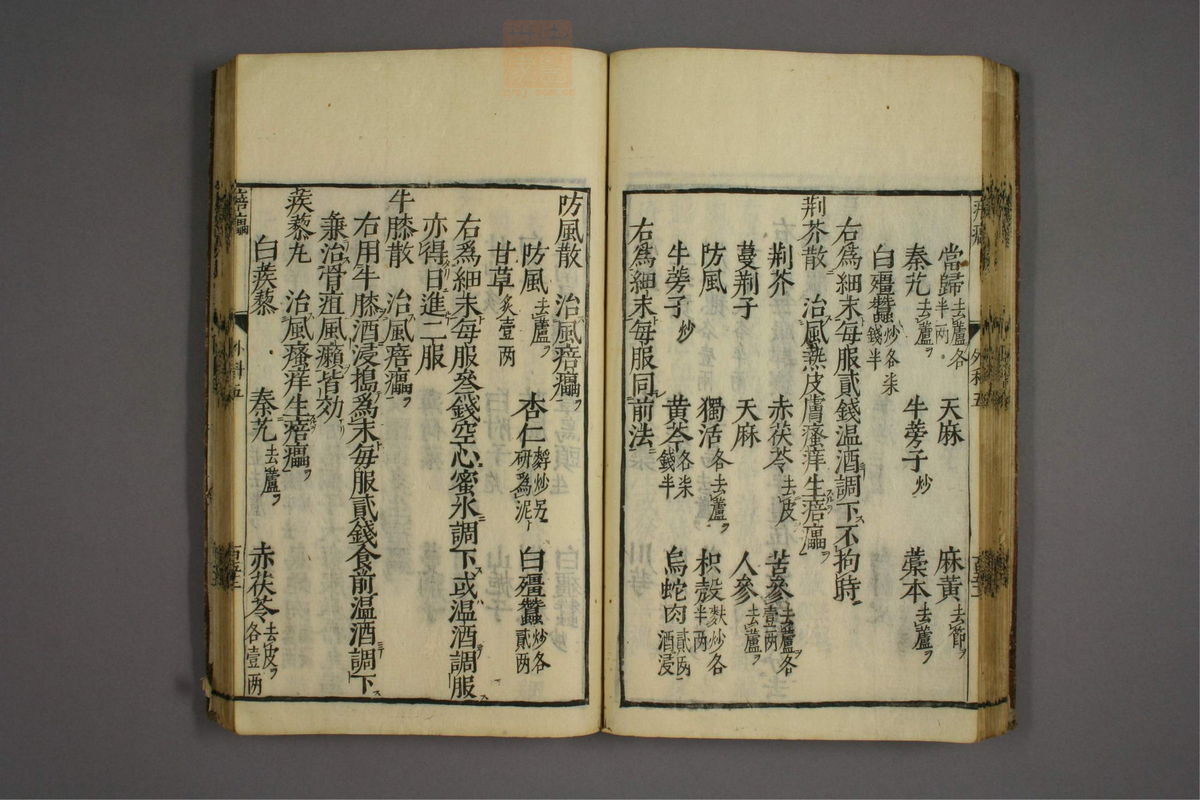 當歸去蘆各半兩 天麻 麻黃去節ヲ
秦艽去蘆ヲ 牛蒡子炒 藁本去蘆ヲ
白殭蠶炒各柒錢半
右爲細末毎服貳錢温酒調下不拘時
荆芥散 治風熱皮膚瘙痒生㾦㿔ヲ
荆芥 赤茯苓去皮 苦參去蘆各壹两
蔓荆子 天麻 人參去蘆ヲ
防風 獨活各去蘆ヲ 枳殼麩炒各半两
牛蒡子炒 黃芩各柒錢半 烏蛇肉酒浸貳两
右爲細末毎服同前法
防風散 治風㾦㿔ヲ
防風去蘆ヲ 杏仁麩炒另研爲泥 白殭蠶炒各貳两
甘草炙壹两
右爲細末毎服叄錢空心蜜氷調下或温酒調服
亦得日進二服
牛膝散 治風㾦㿔ヲ
右用牛膝酒浸搗爲末毎服貳錢食前温酒調下
兼治骨疽風癩皆効
蒺藜丸 治風瘙痒生㾦㿔ヲ
白蒺藜 秦艽去蘆ヲ 赤茯苓去皮ヲ各壹两
㾦㿔
外科五